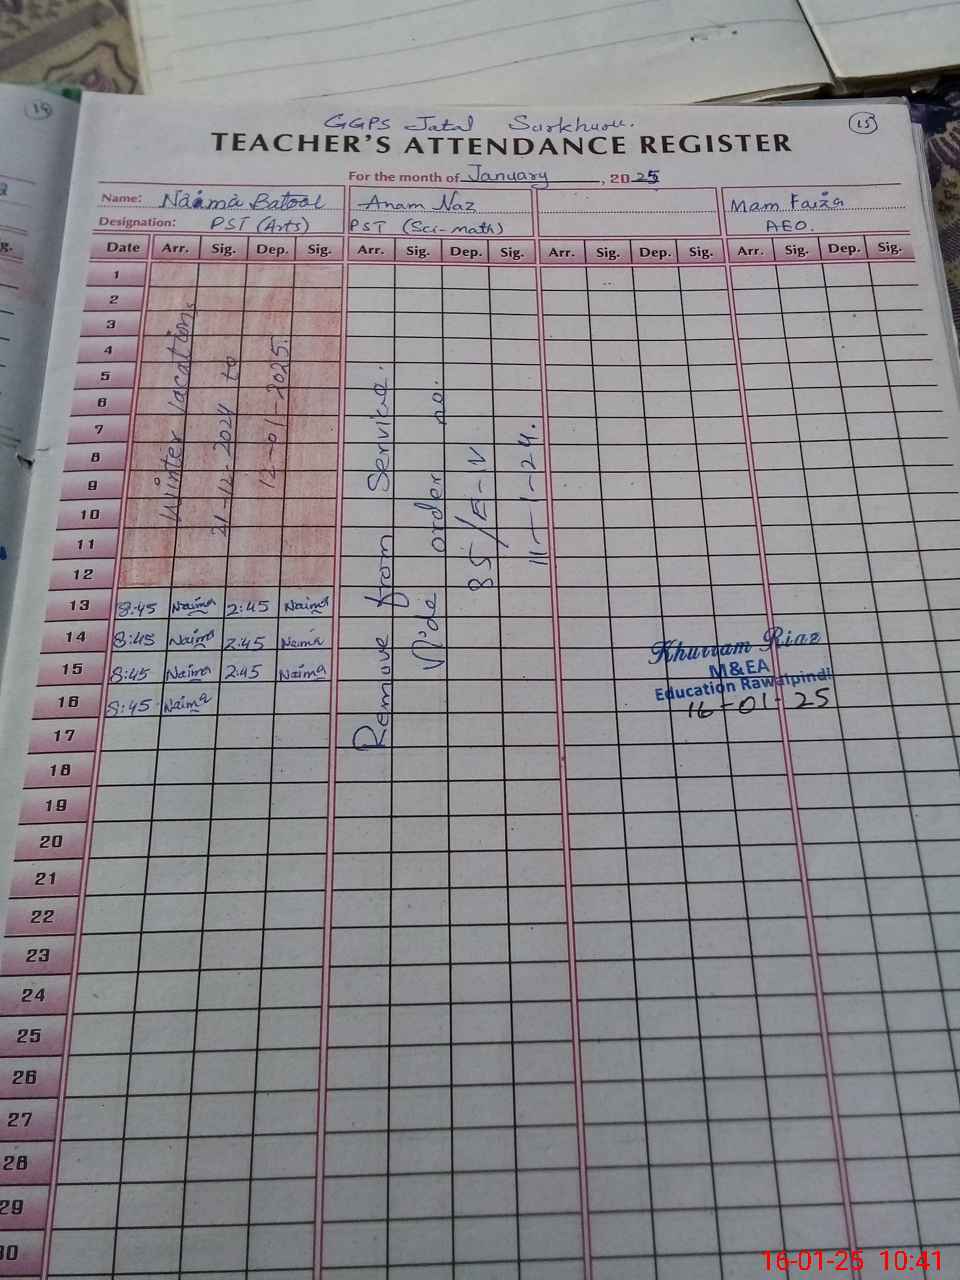 14
GGPS Jatal Surkhuru.
15
TEACHER'S ATTENDANCE REGISTER
For the month of January, 2025
Name: Naima Batool Anam Naz Mam Faiza
Designation: PST (Arts) PST (Sci-math) AEO.
Date Arr. Sig. Dep. Sig. Arr. Sig. Dep. Sig. Arr. Sig. Dep. Sig. Arr. Sig. Dep. Sig.
1
2
3
4
5
6
7
8
9
10
11
12
Winter Vacations
21-12-2024 to
12-01-2025.
Remove from Service.
Vide order no.
85/E-IV
11-1-24.
13 8:45 Naima 2:45 Naima
14 8:45 Naima 2:45 Naima
15 8:45 Naima 2:45 Naima
16 8:45 Naima
Khurram Riaz
M&EA
Education Rawalpindi
16-01-25
17
18
19
20
21
22
23
24
25
26
27
28
29
30
16-01-25 10:41